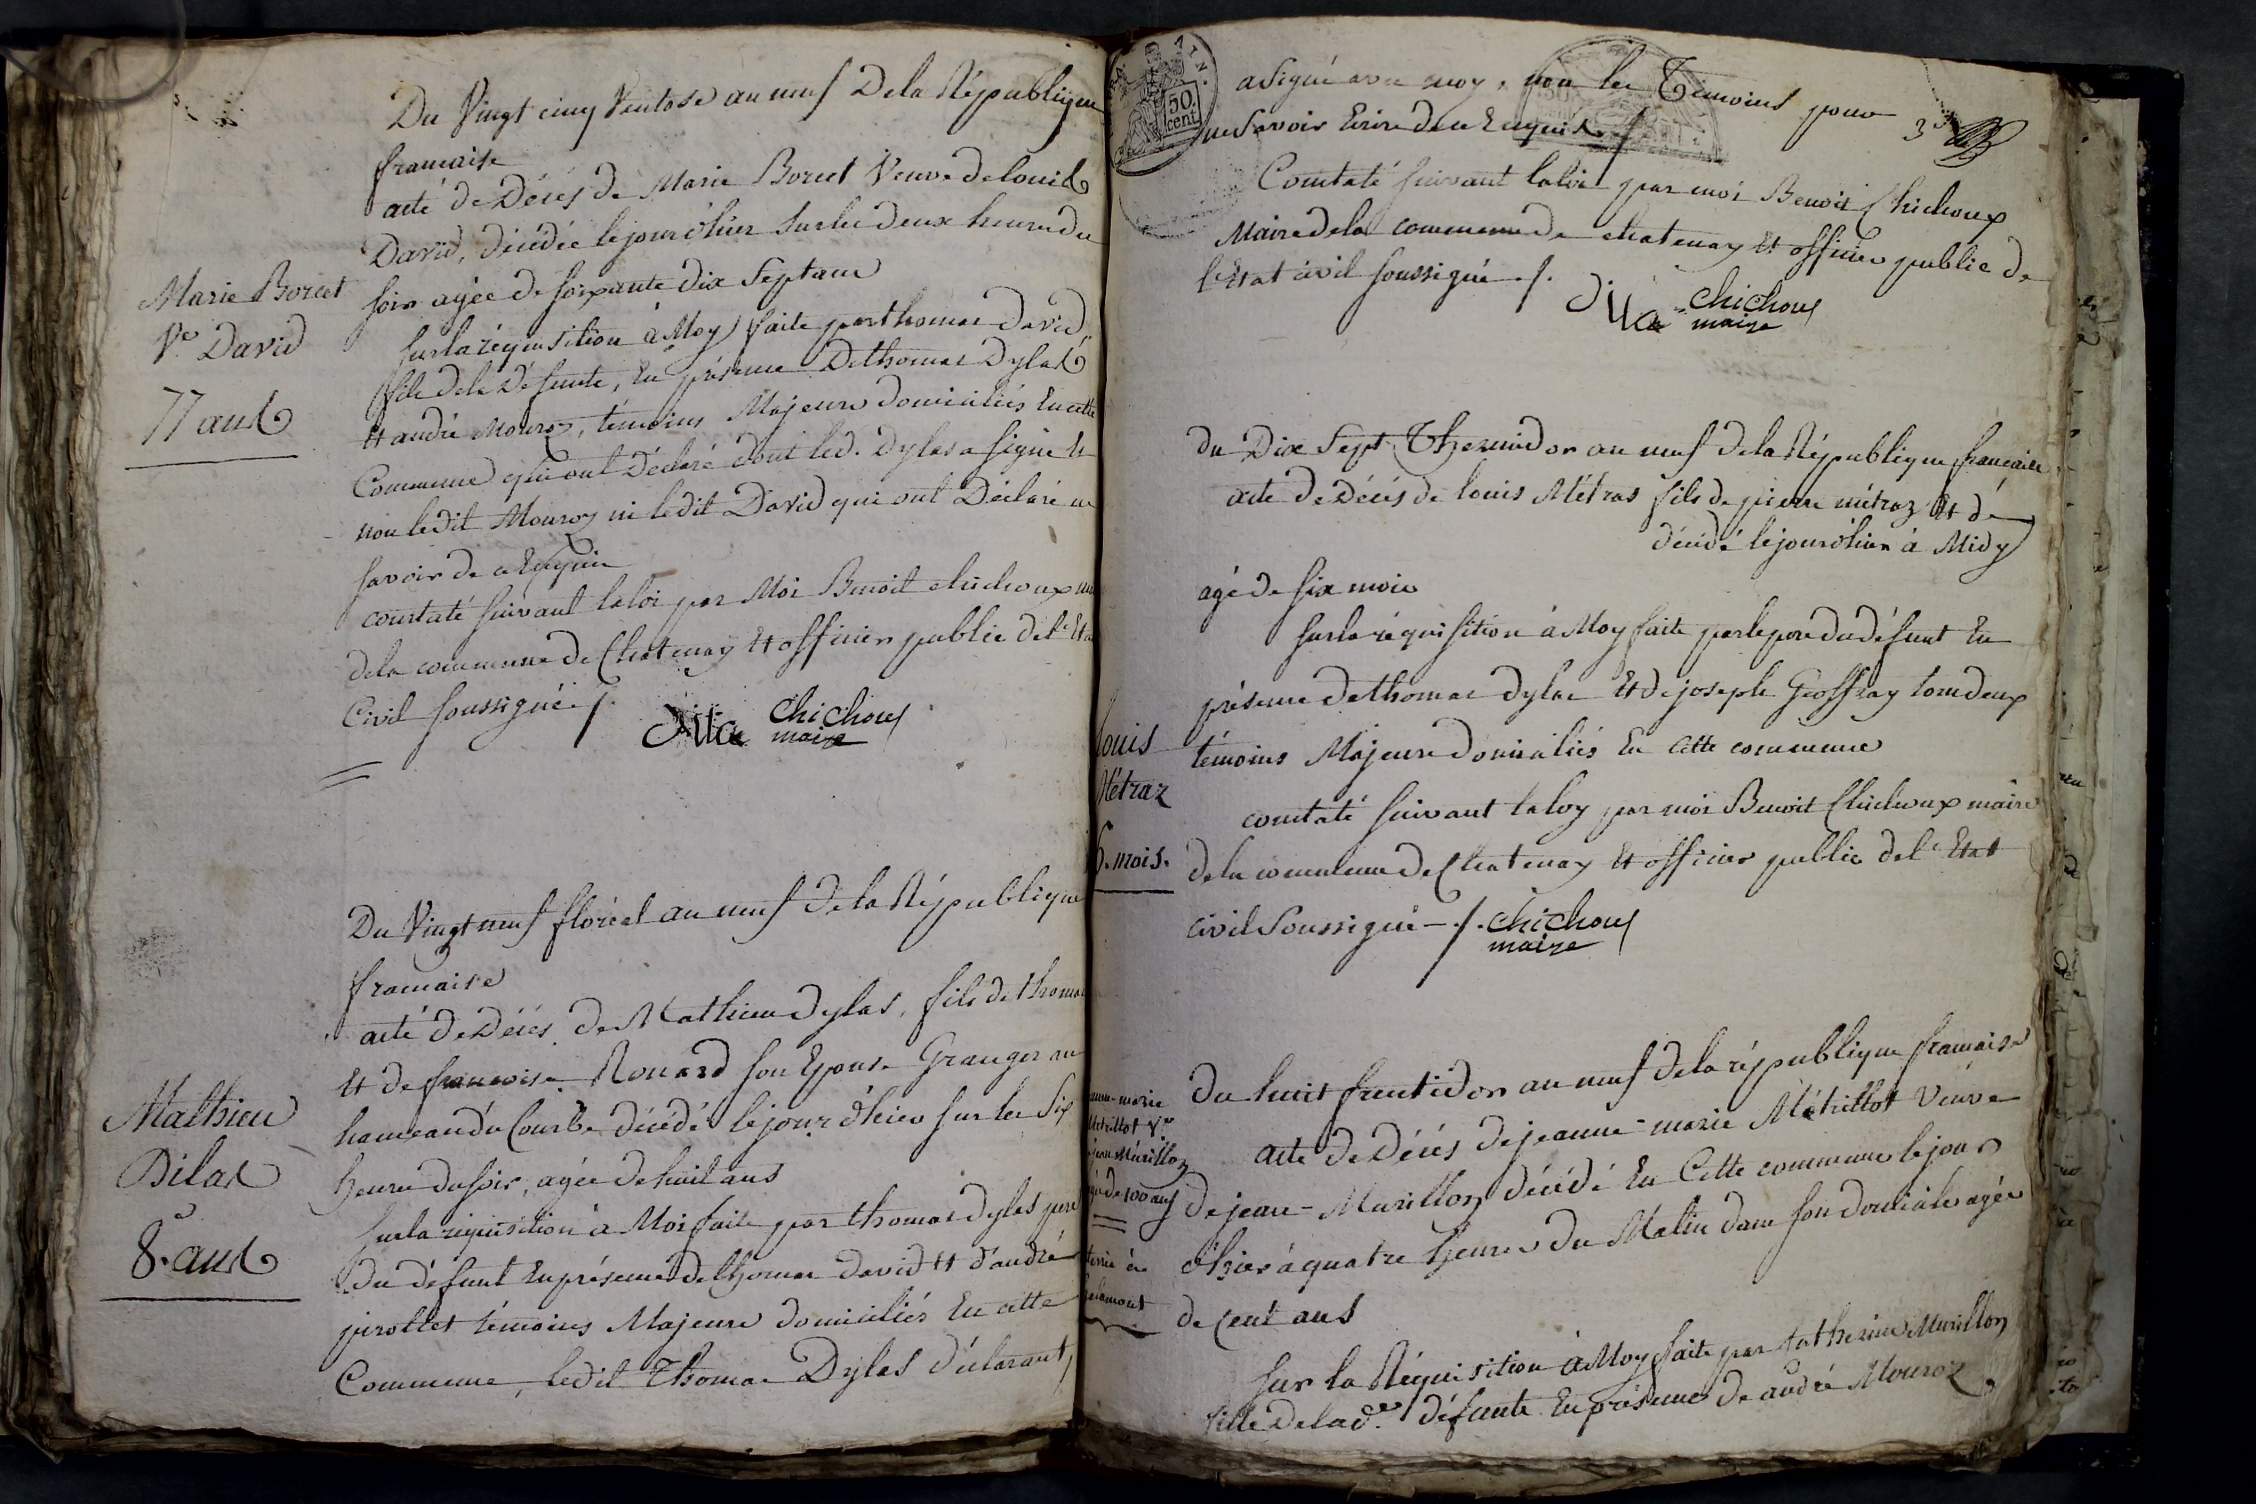 Du Vingt cinq Ventose an neuf De la République
francaise
acte de Décés de Marie Borcet Veuve de louis
David, décédée le jour d'hier sur les deux heures du
soir agée de soixante dix Sept ans
Marie Borcet
Ve. David
77 ans
sur la réquisition à Moy faite par thomas David
fils de la Défunte, En présence De thomas Dylas
Et andré Mouroz, témoins Majeurs domiciliés En cette
Commune qui ont Déclaré dont led. Dylas a signé Et
non ledit Mouroz ni ledit David qui ont Déclaré ne
savoir de ce Enquis
constaté suivant la loi par Moi Benoit chichoux
de la commune de Chatenay Et officier public de l'Eta
Civil soussigné ./.
Dila chichoux
maire
Du Vingt neuf floréal an neuf de la République
francaise
acte de Décés de Mathieu Dylas, fils de thomas
Et de francoise Rouard son Epouse Granger au
hameau du Courbe décédé le jour d'hier sur les Six
heures du soir, agée de huit ans
Mathieu
Dilas
8. ans
sur la réquisition à Moi faite par thomas dylas pere
du défunt En présence de thomas david Et d'andré
pirollet témoins Majeurs domiciliés En cette
Commune, ledit Thomas Dylas déclarant,
50
cent
a signé avec moy, non les Témoins pour
ne Savoir Ecrire de ce Enquis ./.
3e
Constaté suivant la loi par moi Benoit Chichoux
Maire de la commune de chatenay Et officier public de
l'Etat civil soussigné ./.
Dila chichoux
maire
du Dix Sept Thermidor an neuf de la République francaise
acte de Décés de louis Métras fils de pierre métraz Et de
décédé le jour d'hier à Midy
agé de six mois
sur la réquisition à Moy faite par le pere du défunt En
présence de thomas dylas Et de joseph Geoffray tous deux
témoins Majeurs domiciliés En cette commune
louis
Métraz
6. mois.
constaté suivant la loy par moi Benoit Chichoux maire
de la commune de Chatenay Et officier public de l'Etat
civil Soussigné - ./. chichoux
maire
Du huit fructidor an neuf de la république francaise
acte de Décés de jeanne-marie Métrillot Veuve
de jean-Murillon décédé En Cette commune le jour
d'hier à quatre heures du Matin dans son domicile agée
de Cent ans
marie
Métrillot Ve.
jean Murillon
de 100 ans
Sur la Réquisition à Moy faite par Catherine Murillon
fille de lade. défunte En présence de andré Mouroz